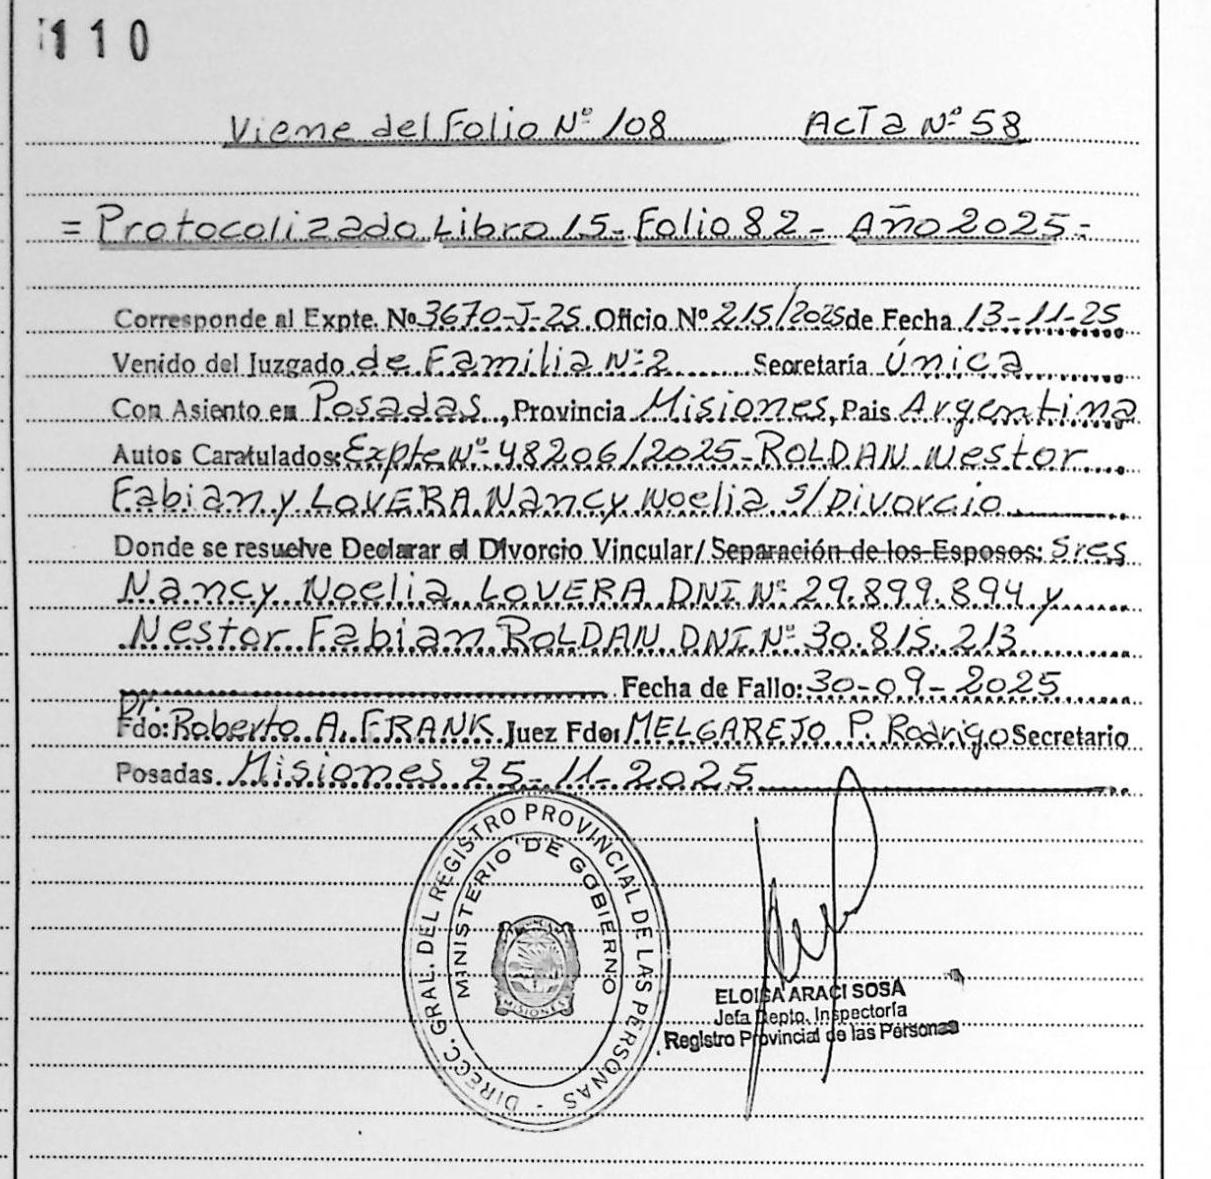 110
Viene del Folio Nº 108 Acta Nº 58
= Protocolizado Libro 15- Folio 82- Año 2025-
Corresponde al Expte. Nº 3670-J-25 Oficio Nº 215/2025 de Fecha 13-11-25
Venido del Juzgado de Familia Nº 2 Secretaría Única
Con Asiento en Posadas, Provincia Misiones, Pais Argentina
Autos Caratulados: Expte Nº 48206/2025-ROLDAN Nestor
Fabian y LOVERA Nancy Noelia s/Divorcio
Donde se resuelve Declarar el Divorcio Vincular/ Separación de los Esposos: Sres
Nancy Noelia LOVERA DNI Nº 29.899.894 y
Nestor Fabian ROLDAN DNI Nº 30.815.213
Fecha de Fallo: 30-09-2025
Dr.
Fdo: Roberto A. FRANK Juez Fdo: MELGAREJO P. Rodrigo Secretario
Posadas. Misiones 25-11-2025
DIRECC. GRAL. DEL REGISTRO PROVINCIAL DE LAS PERSONAS -
MINISTERIO DE GOBIERNO
MISIONES
ELOISA ARACI SOSA
Jefa Depto. Inspectoría
Registro Provincial de las Personas